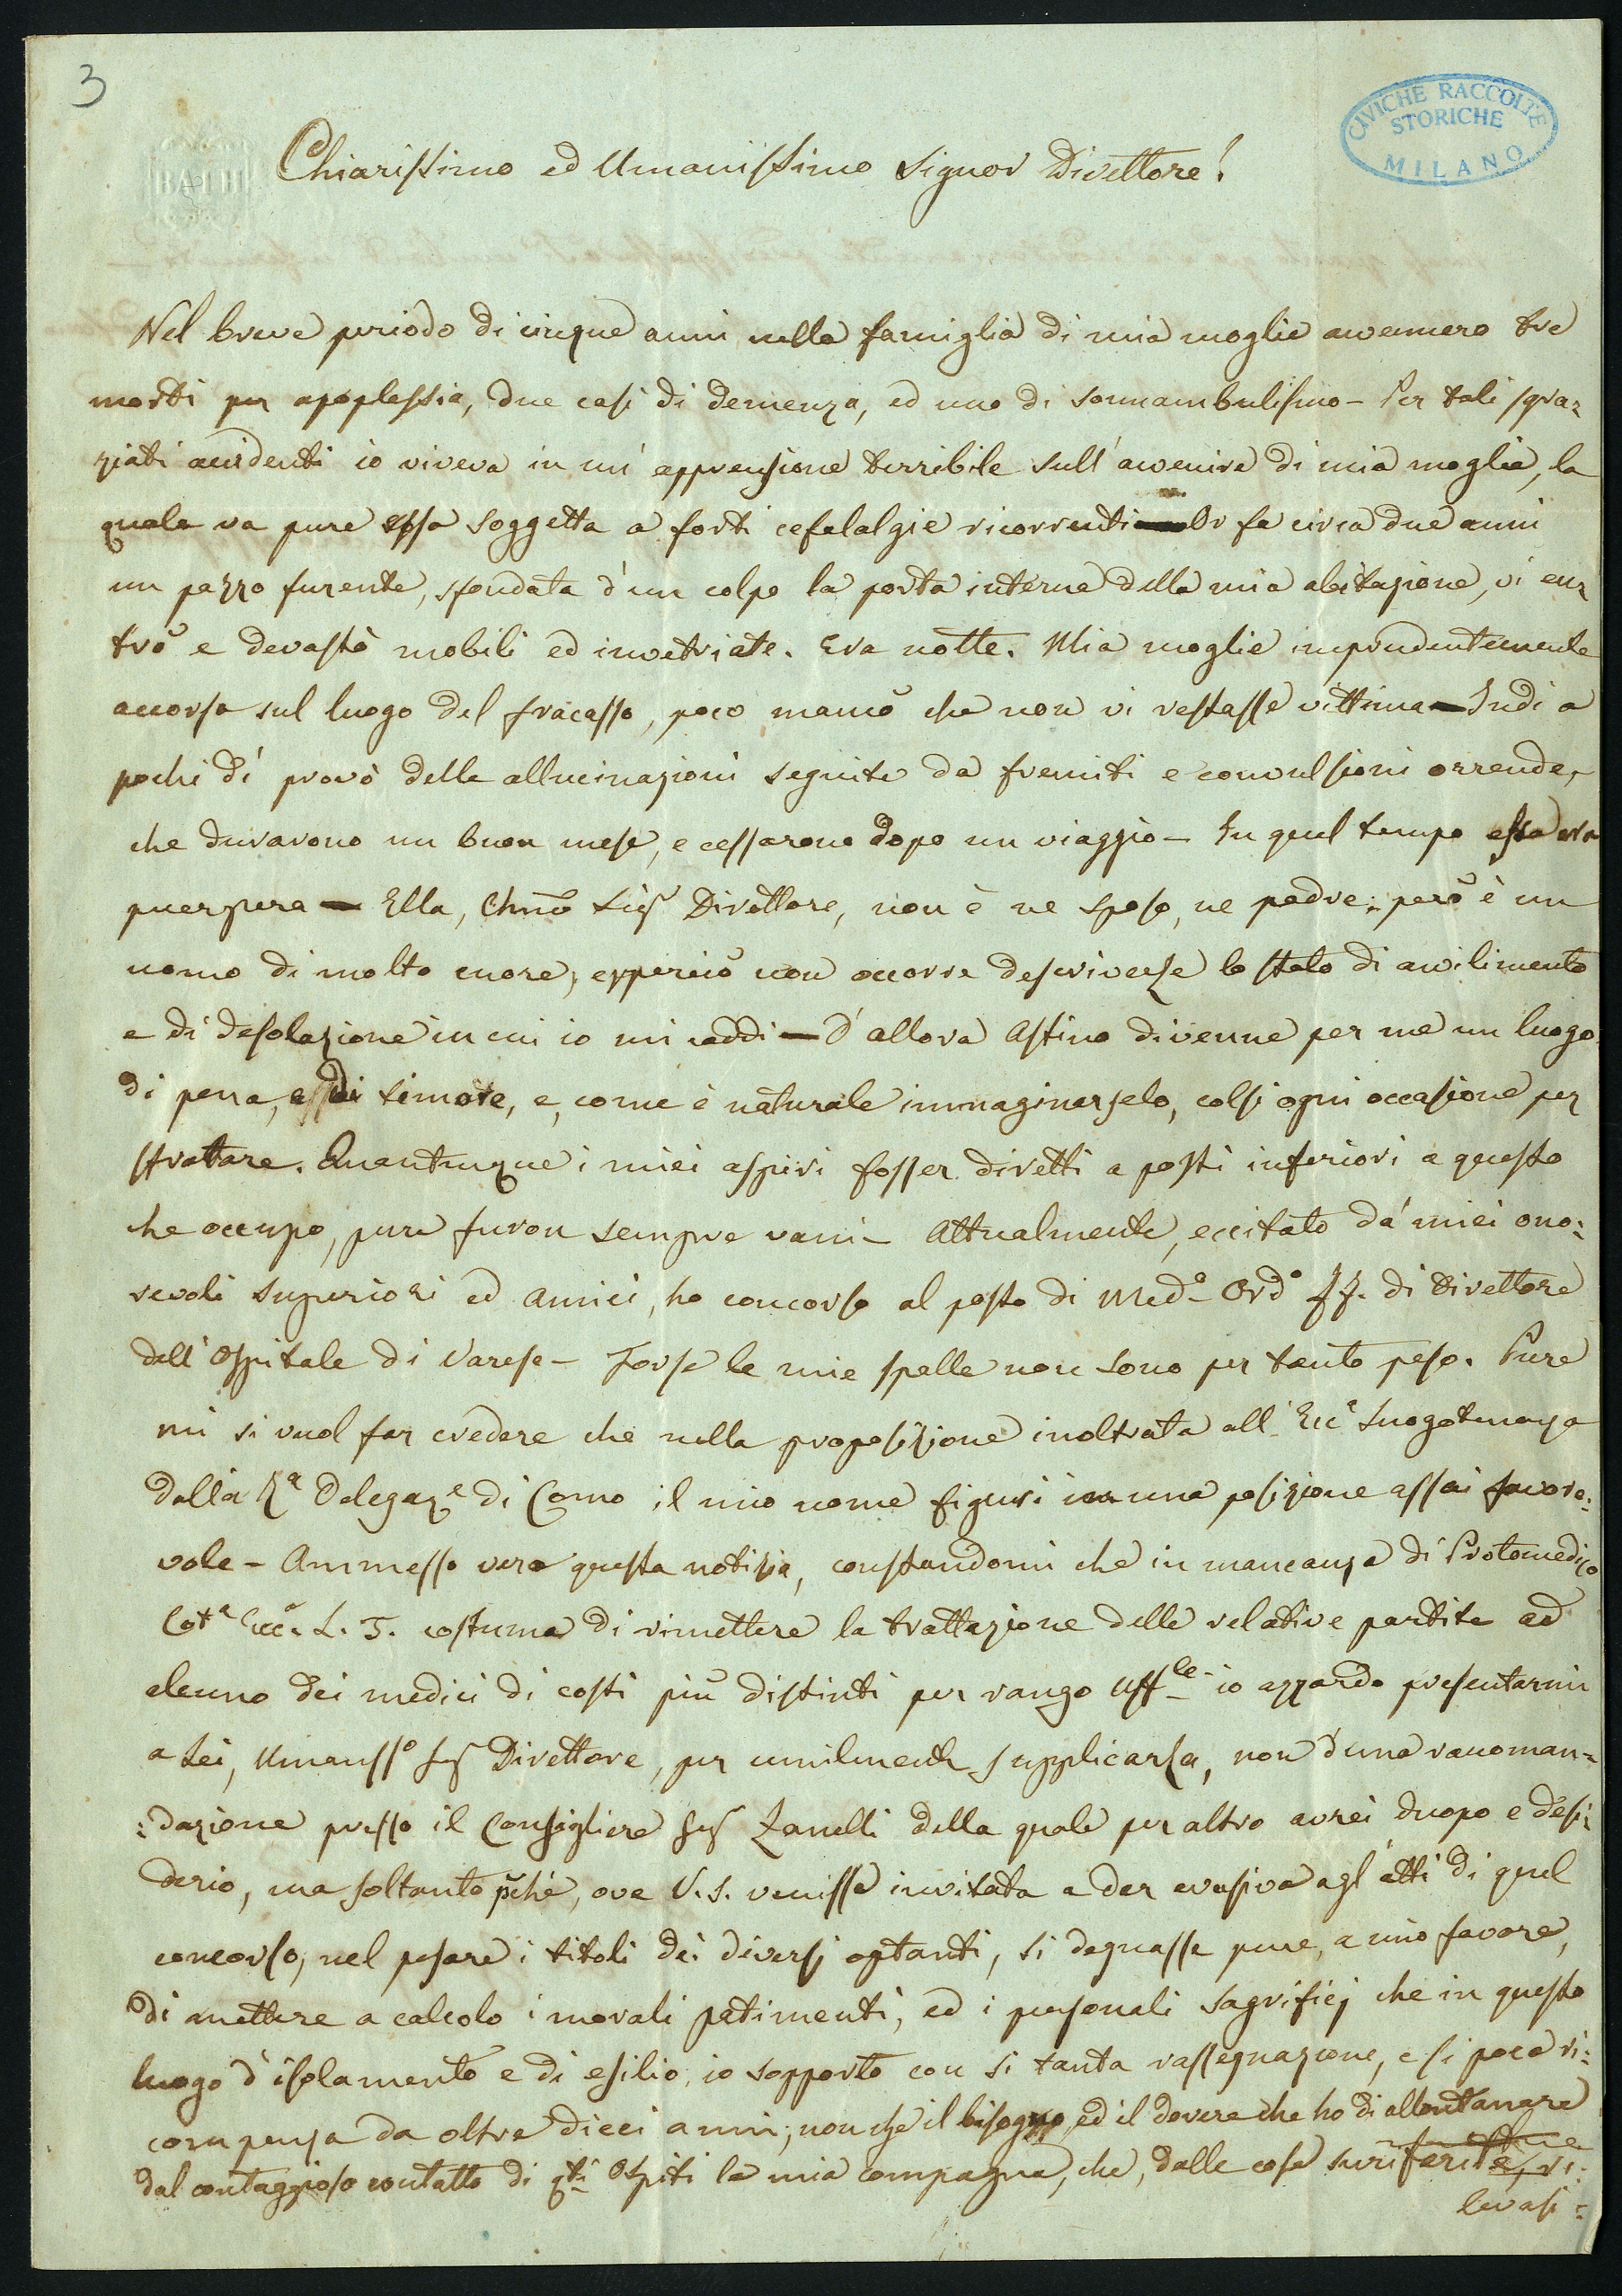 3
CIVICHE RACCOLTE
STORICHE
MILANO
BATH
Chiarissimo ed Umanissimo Signor Direttore!
Nel breve periodo di cinque anni nella famiglia di mia moglie avvennero tre
morti per apoplessia, due casi di demenza, ed uno di sonnambulismo – Per tali sgra=
ziati accidenti io viveva in un' apprensione terribile sull' avvenire di mia moglie, la
quale va pure essa soggetta a forti cefalalgie ricorrenti — Or fa circa due anni
un pazzo furente, sfondata d'un colpo la porta interna della mia abitazione, vi en=
trò e devastò mobili ed invetriate. Era notte. Mia moglie imprudentemente
accorsa sul luogo del fracasso, poco mancò che non vi restasse vittima – Indi a
pochi dí provò delle allucinazioni seguite da fremiti e convulsioni orrende,
che durarono un buon mese, e cessarono dopo un viaggio – In quel tempo essa era
puerpera – Ella, Chmo Sigr Direttore, non è ne sposo, ne padre; però è un
uomo di molto cuore, epperciò non occorre descriverle lo stato di avvilimento
e di desolazione in cui io mi caddi – D'allora Astino divenne per me un luogo
di pena, e di timore, e, come è naturale immaginarselo, colsi ogni occasione per
sfrattare. Quantunque i miei aspiri fosser diretti a posti inferiori a questo
che occupo, pure furon sempre vani – Attualmente, eccitato da' miei ono=
revoli superiori ed amici, ho concorso al posto di Med.o Ord.o ff. di Direttore
dell' Ospitale di Varese – Forse le mie spalle non sono per tanto peso. Pure
mi si vuol far credere che nella proposizione inoltrata all' Ecc.a Luogotenenza
dalla R.a Delegaz.e di Como il mio nome figuri in una posizione assai favore=
vole – Ammessa vera questa notizia, constandomi che in mancanza di Protomedico
Cot.a Ecc.a L. T. costuma di rimettere la trattazione delle relative partite ad
alcuno dei medici di costì più distinti per rango Uff.le – io azzardo presentarmi
a Lei, Umaniss.o Sigr Direttore, per umilmente supplicarla, non d'una raccoman=
=dazione presso il Consigliere Sigr Zanelli della quale per altro avrei duopo e desi=
derio, ma soltanto pchè, ove V. S. venisse invitata a dar evasiva agl' atti di quel
concorso, nel pesare i titoli dei diversi optanti, si degnasse pure, a mio favore,
di mettere a calcolo i morali patimenti, ed i personali sagrificj che in questo
luogo d'isolamento e di esilio, io sopporto con si tanta rassegnazione, e si poca ri=
compensa da oltre dieci anni, non che il bisogno, ed il dovere che ho di allontanare
dal contaggioso contatto di qti Ospiti la mia compagna, che, dalle cose suriferite, ri=
levasi =